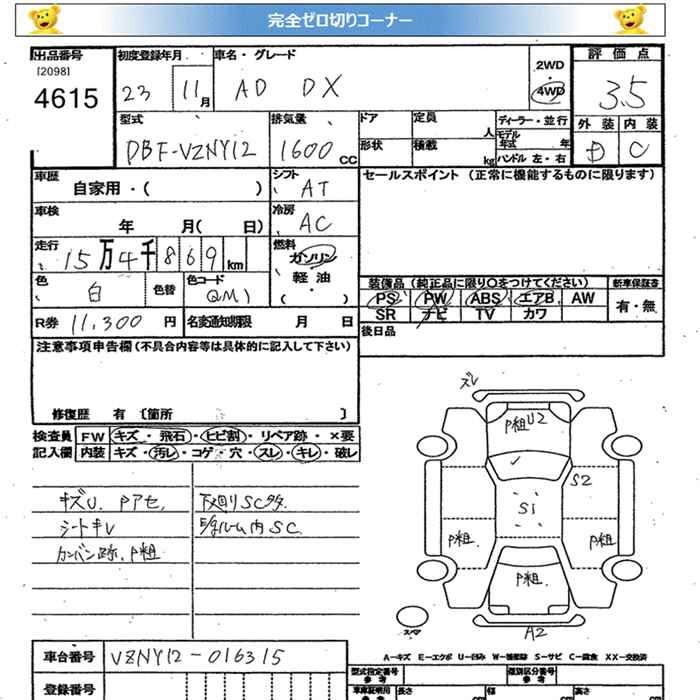 完全ゼロ切りコーナー
出品番号 初度登録年月 車名・グレード 2WD・4WD 評価点
[2098]
4615 23 11月 AD DX 3.5
型式 排気量 ドア 定員 人 ディーラー・並行 外装 内装
DBF-VZNY12 1600CC 形状 積載 kg モデル年式 年 ハンドル 左・右 D C
車歴 自家用・( ) シフト AT セールスポイント (正常に機能するものに限ります)
車検 年 月( 日) 冷房 AC
走行 15万4千869km 燃料 ガソリン 軽油 ( )
色 白 色替 色コード QM1 装備品 (純正品に限り○をつけてください) 新車保証書
PS PW ABS エアB AW 有・無
R券 11,300円 名変通知期限 月 日 SR ナビ TV カワ
注意事項申告欄(不具合内容等は具体的に記入して下さい) 後日品
修復歴 有 〔箇所 〕
検査員 FW キズ・飛石・ヒビ割・リペア跡・×要
記入欄 内装 キズ・汚レ・コゲ・穴・スレ・キレ・破レ
キズU. Pアセ. 下廻りSC多.
シートキレ
カンバン跡. P粗
ズレ
P粗 U2
S2
S1
P粗 P粗
P粗
スペア A2
車台番号 VZNY12-016315
A-キズ E-エクボ U-凹み W-補修跡 S-サビ C-腐食 XX-交換済
登録番号 型式指定番号 参考 類別区分番号 参考
車庫証明用 参考 長さ cm 幅 cm 高さ cm